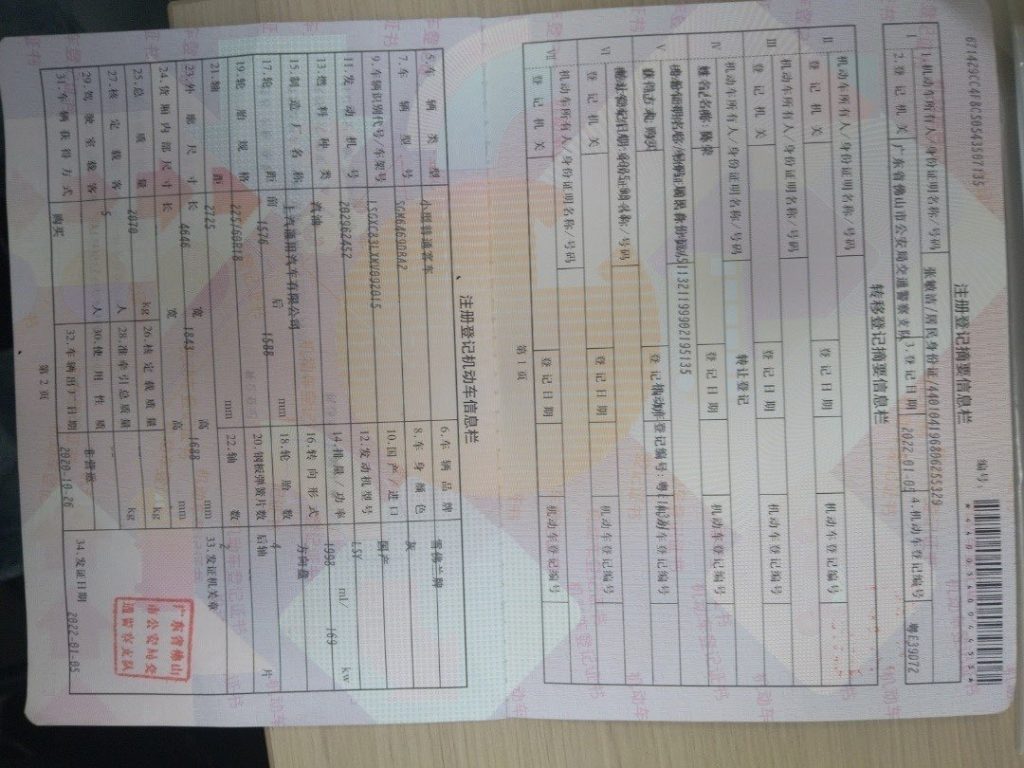 671429CC4F8C505435671 35
编号:
注册登记摘要信息栏
I 1.机动车所有人/身份证明名称/号码 张敏清/居民身份证/440104196806255329
2.登记机关 广东省佛山市公安局交通警察支队 3.登记日期 2022-01-05 4.机动车登记编号 粤E39D72
转移登记摘要信息栏
II 机动车所有人/身份证明名称/号码
登记机关 登记日期 机动车登记编号
III 机动车所有人/身份证明名称/号码
登记机关 登记日期 机动车登记编号
转让登记
IV 机动车所有人/身份证明名称/号码
登记机关 登记日期 机动车登记编号
511321199902195135
V 登记机关 登记日期 机动车登记编号
VI 机动车所有人/身份证明名称/号码
登记机关 登记日期 机动车登记编号
VII 机动车所有人/身份证明名称/号码
登记机关 登记日期 机动车登记编号
第1页
注册登记机动车信息栏
5.车辆类型 小型普通客车 6.车辆品牌 雪佛兰牌
7.车辆型号 SGM6469DBA2 8.车身颜色 灰
9.车辆识别代号/车架号 10.国产/进口 国产
11.发动机号 202062452 12.发动机型号 LSY
13.燃料种类 汽油 14.排量/功率 1998 ml/ 169 kw
15.制造厂名称 上汽通用汽车有限公司 16.转向形式 方向盘
17.轮距 前 1576 后 1588 mm 18.轮胎数 4
19.轮胎规格 225/60R18 20.钢板弹簧片数 后轴 片
21.轴距 2725 mm 22.轴数 2
23.外廓尺寸 长 4646 宽 1843 高 1688 mm 33.发证机关章
24.货厢内部尺寸 长 宽 高 mm
25.总质量 2070 kg 26.核定载质量 kg
27.核定载客 5 人 28.准牵引总质量 kg
29.驾驶室载客 人 30.使用性质 非营运
31.车辆获得方式 购买 32.车辆出厂日期 2020-10-26 34.发证日期 2022-01-05
广东省佛山
市公安局交
通警察支队
第2页